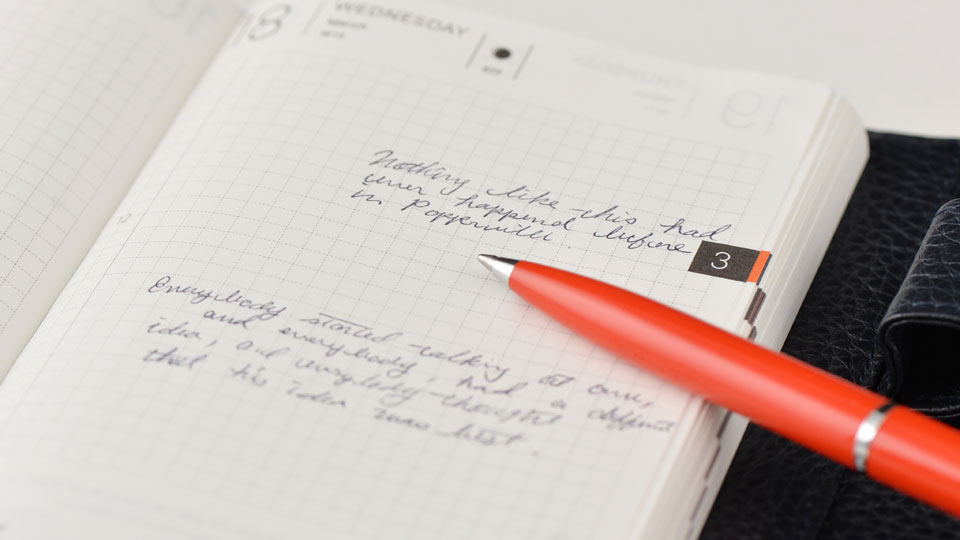 18
WEDNESDAY
March
3
Nothing like this had
ever happend before
in Popperville.
Everybody started talking at once,
and everybody, had a different
idea, and everybody thought
that his idea was best.
12
19
THURSDAY